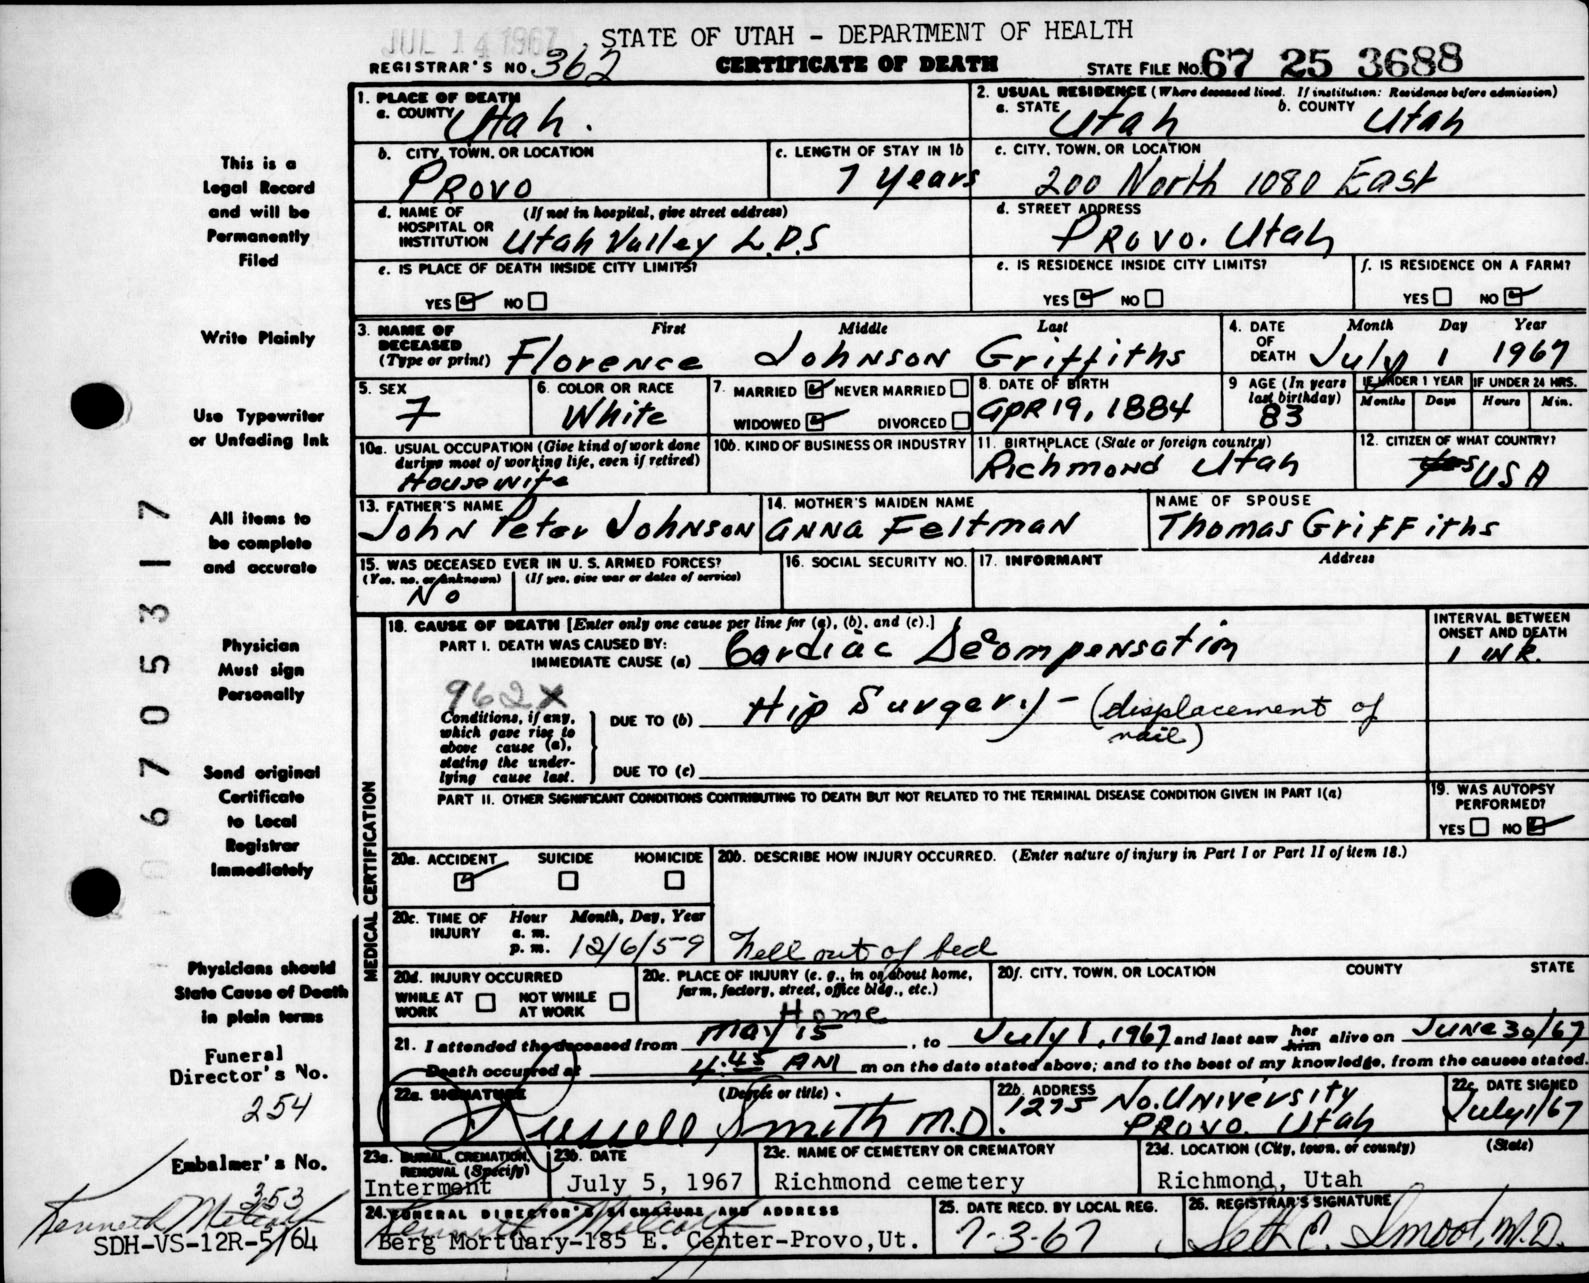 JUL 14 1967
STATE OF UTAH - DEPARTMENT OF HEALTH
REGISTRAR'S NO. 362
CERTIFICATE OF DEATH
STATE FILE NO. 67 25 3688
1. PLACE OF DEATH
a. COUNTY Utah.
2. USUAL RESIDENCE (Where deceased lived. If institution: Residence before admission)
a. STATE Utah b. COUNTY Utah
b. CITY, TOWN, OR LOCATION
Provo
c. LENGTH OF STAY IN 1b
7 years
c. CITY, TOWN, OR LOCATION
200 North 1080 East
d. NAME OF HOSPITAL OR INSTITUTION (If not in hospital, give street address)
Utah Valley L.D.S
d. STREET ADDRESS
Provo. Utah
e. IS PLACE OF DEATH INSIDE CITY LIMITS?
YES NO
e. IS RESIDENCE INSIDE CITY LIMITS?
YES NO
f. IS RESIDENCE ON A FARM?
YES NO
3. NAME OF DECEASED (Type or print)
First Middle Last
Florence Johnson Griffiths
4. DATE OF DEATH Month Day Year
July 1 1967
5. SEX
F
6. COLOR OR RACE
White
7. MARRIED NEVER MARRIED
WIDOWED DIVORCED
8. DATE OF BIRTH
Apr 19, 1884
9 AGE (In years last birthday)
83
IF UNDER 1 YEAR IF UNDER 24 HRS.
Months Days Hours Min.
10a. USUAL OCCUPATION (Give kind of work done during most of working life, even if retired)
Housewife
10b. KIND OF BUSINESS OR INDUSTRY
11. BIRTHPLACE (State or foreign country)
Richmond Utah
12. CITIZEN OF WHAT COUNTRY?
USA
13. FATHER'S NAME
John Peter Johnson
14. MOTHER'S MAIDEN NAME
Anna Feltman
NAME OF SPOUSE
Thomas Griffiths
15. WAS DECEASED EVER IN U. S. ARMED FORCES?
(Yes, no, or unknown) (If yes, give war or dates of service)
No
16. SOCIAL SECURITY NO.
17. INFORMANT Address
MEDICAL CERTIFICATION
18. CAUSE OF DEATH [Enter only one cause per line for (a), (b), and (c).]
INTERVAL BETWEEN ONSET AND DEATH
PART I. DEATH WAS CAUSED BY:
IMMEDIATE CAUSE (a) Cardiac Decompensation
962X
Conditions, if any, which gave rise to above cause (a), stating the underlying cause last.
DUE TO (b) Hip Surgery - (displacement of
nail)
DUE TO (c)
PART II. OTHER SIGNIFICANT CONDITIONS CONTRIBUTING TO DEATH BUT NOT RELATED TO THE TERMINAL DISEASE CONDITION GIVEN IN PART I(a)
19. WAS AUTOPSY PERFORMED?
YES NO
20a. ACCIDENT SUICIDE HOMICIDE
20b. DESCRIBE HOW INJURY OCCURRED. (Enter nature of injury in Part I or Part II of item 18.)
Fell out of bed
20c. TIME OF INJURY Hour Month, Day, Year
a. m.
p. m. 12/6/59
20d. INJURY OCCURRED
WHILE AT WORK NOT WHILE AT WORK
20e. PLACE OF INJURY (e. g., in or about home, farm, factory, street, office bldg., etc.)
Home
20f. CITY, TOWN, OR LOCATION COUNTY STATE
21. I attended the deceased from May 15, to July 1, 1967 and last saw her him alive on June 30/67
Death occurred at 4:45 AM m on the date stated above; and to the best of my knowledge, from the causes stated.
22a. SIGNATURE (Degree or title)
Russell Smith M.D.
22b. ADDRESS
1275 No. University
Provo. Utah
22c. DATE SIGNED
July 1/67
23a. BURIAL, CREMATION, REMOVAL (Specify)
Interment
23b. DATE
July 5, 1967
23c. NAME OF CEMETERY OR CREMATORY
Richmond cemetery
23d. LOCATION (City, town, or county) (State)
Richmond, Utah
24. FUNERAL DIRECTOR'S SIGNATURE AND ADDRESS
Kenneth Metcalf
Berg Mortuary-185 E. Center-Provo,Ut.
25. DATE RECD. BY LOCAL REG.
7-3-67
26. REGISTRAR'S SIGNATURE
Seth E. Smoot, M.D.
This is a
Legal Record
and will be
Permanently
Filed
Write Plainly
Use Typewriter
or Unfading Ink
All items to
be complete
and accurate
Physician
Must sign
Personally
Send original
Certificate
to Local
Registrar
Immediately
Physicians should
State Cause of Death
in plain terms
Funeral
Director's No.
254
Embalmer's No.
353
Kenneth Metcalf
SDH-VS-12R-5/64
06705317